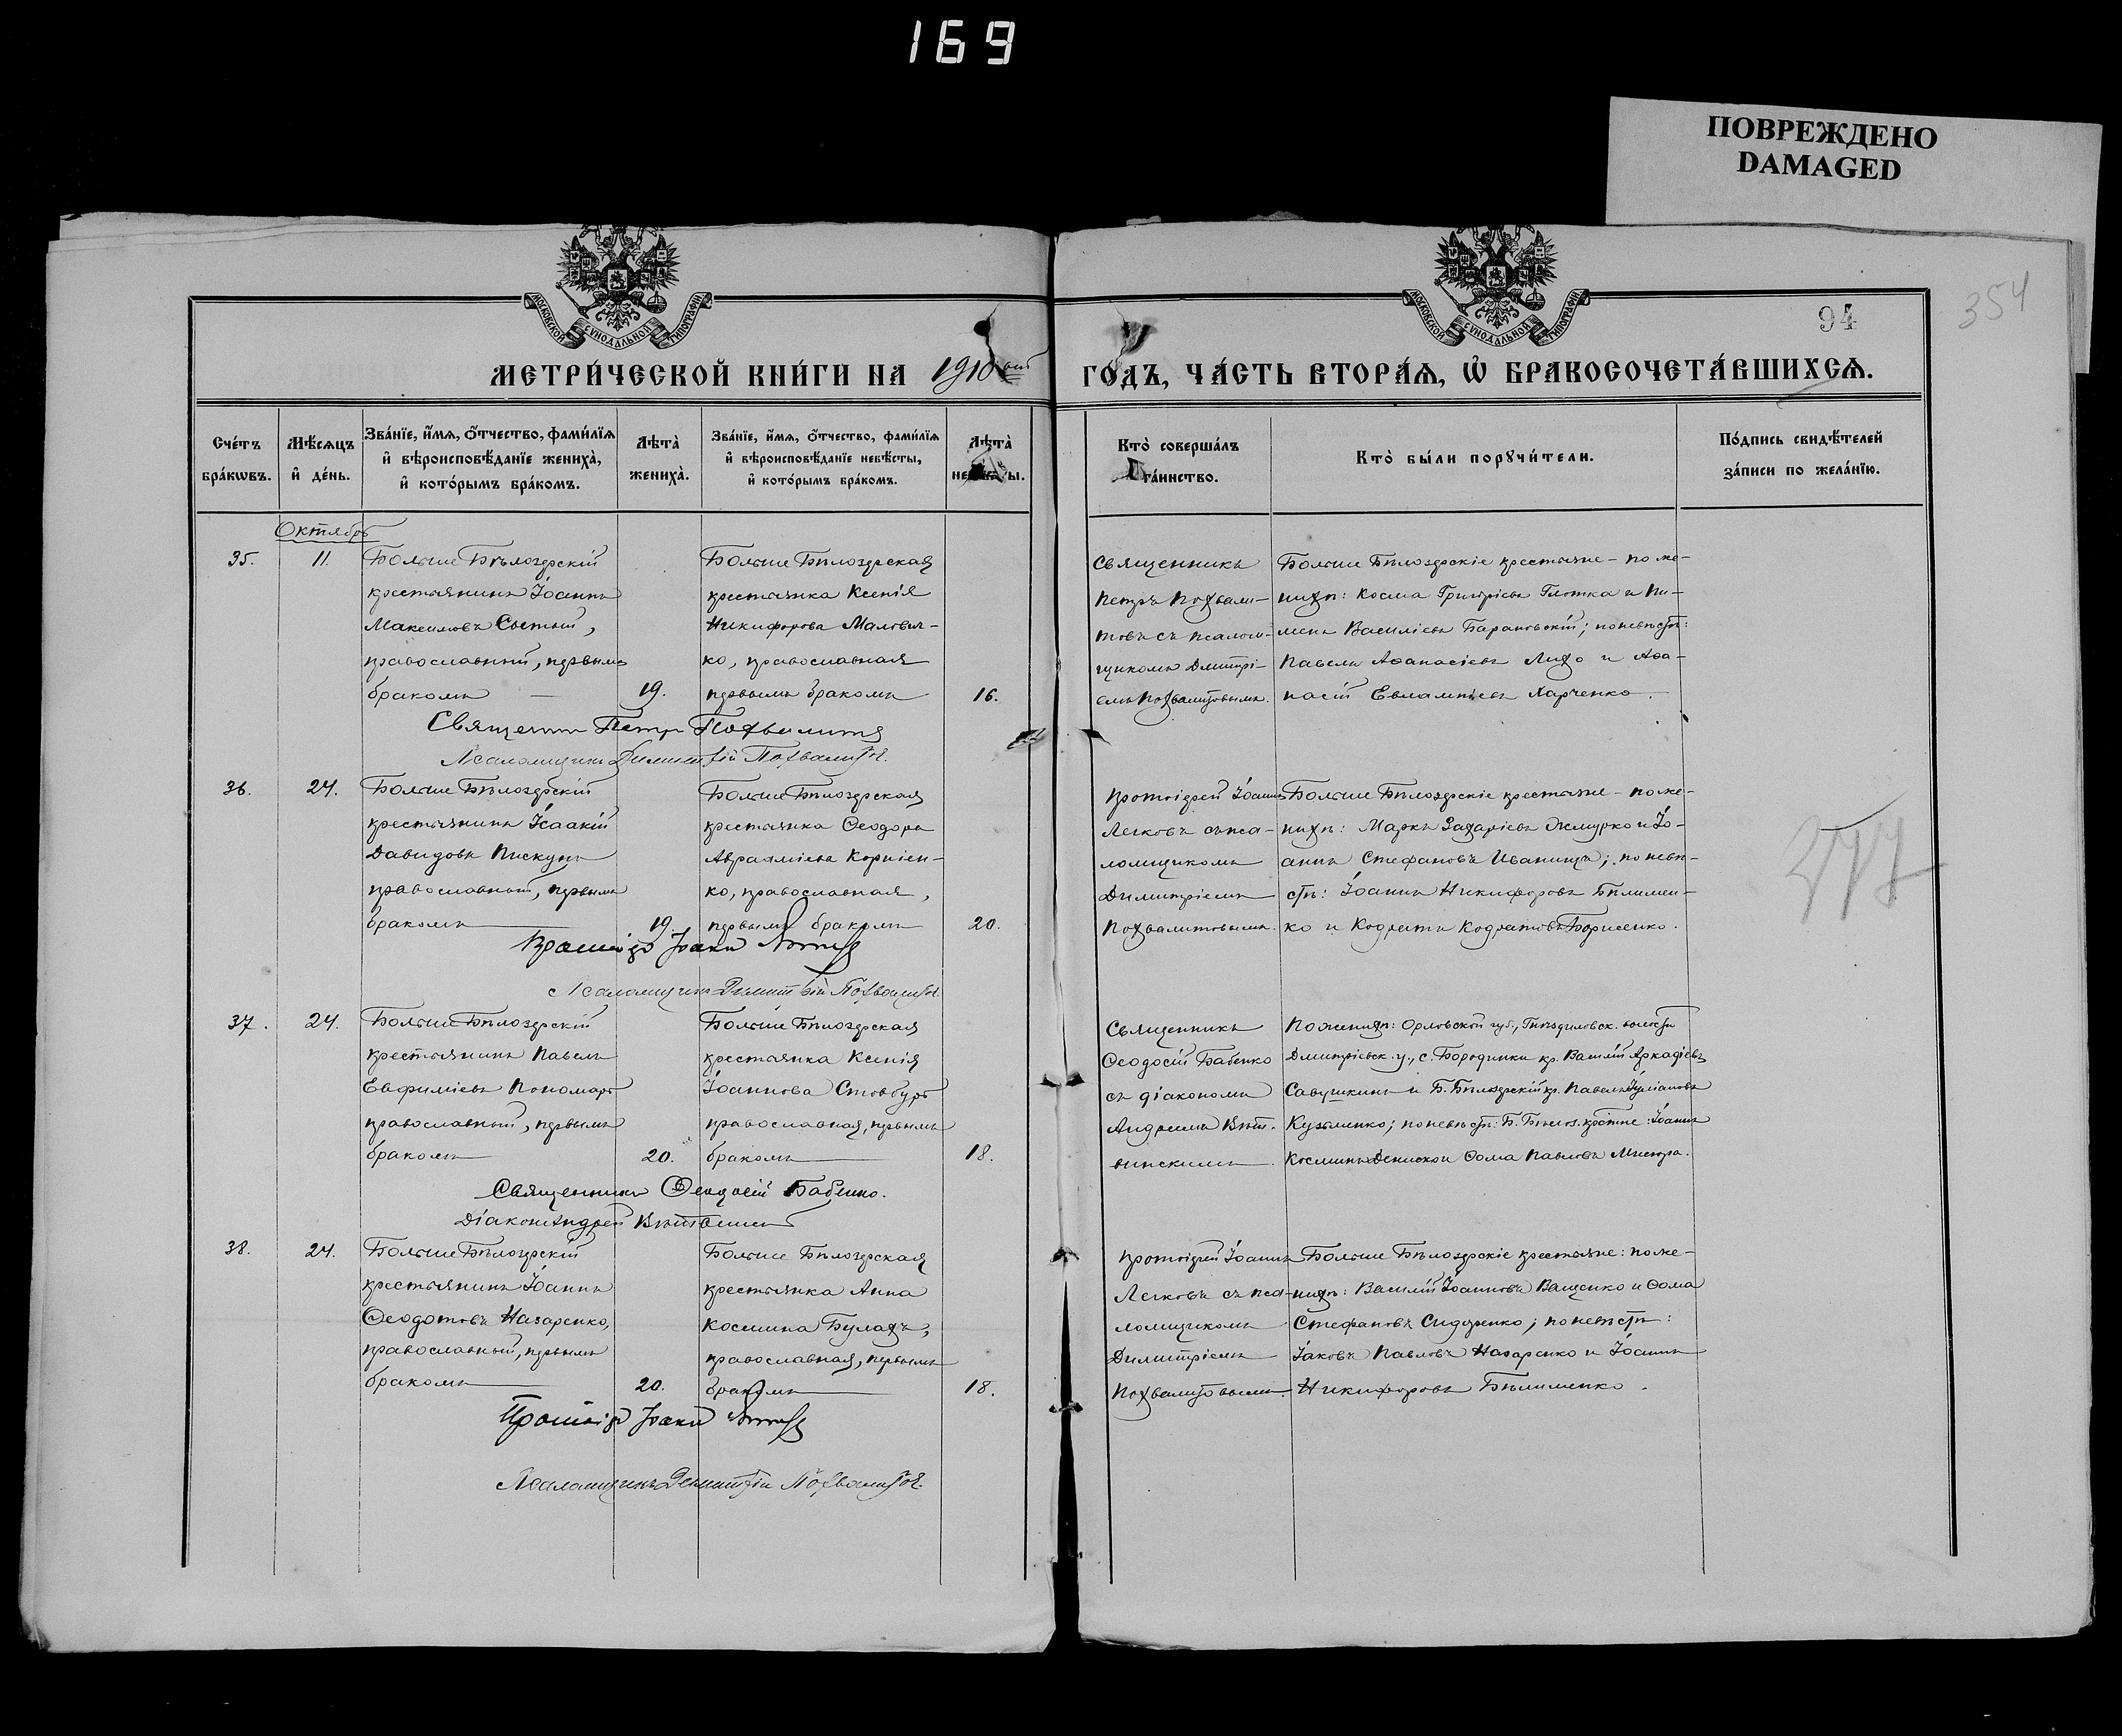 169
ПОВРЕЖДЕНО
DAMAGED
354
94
МОСКОВСКОЙ СѴНОДАЛЬНОЙ ТИПОГРАФІИ
МОСКОВСКОЙ СѴНОДАЛЬНОЙ ТИПОГРАФІИ
МЕТРИ́ЧЕСКОЙ КНИ́ГИ НА 1910ый ГОДЪ, ЧА́СТЬ ВТОРА́Ѧ, Ѡ БРАКОСОЧЕТА́ВШИХСѦ.
Сче́тъ
бра́кѡвъ.
Мѣ́сѧцъ
и҆ де́нь.
Зва́нїе, и҆́мѧ, ѻ҆́тчество, фами́лїѧ
и҆ вѣроисповѣ́данїе жениха̀,
и҆ кото́рымъ бра́комъ.
Лѣта̀
жениха̀.
Зва́нїе, и҆́мѧ, ѻ҆́тчество, фами́лїѧ
и҆ вѣроисповѣ́данїе невѣ́сты,
и҆ кото́рымъ бра́комъ.
Лѣта̀
не ы.
Кто̀ соверша́лъ
та́инство.
Кто̀ бы́ли порꙋчи́тели.
По́дпись свидѣ́телей
за́писи по жела́нїю.
Октябрь
35.
11.
Больше Бѣлозерскій
крестьянинъ Іоаннъ
Максимовъ Сытый,
православный, первымъ
бракомъ —
19.
Больше Бѣлозерская
крестьянка Ксенія
Никифорова Малович-
ко, православная
первымъ бракомъ
16.
Священникъ
Петръ Похвали-
товъ съ псалом-
щикомъ Дмитрі-
емъ Похвалитовымъ.
Больше Бѣлозерскіе крестьяне - по же-
нихѣ: Косма Григоріевъ Глотка и Пи-
менъ Василіевъ Барановскій; по невѣстѣ:
Павелъ Аѳанасіевъ Лихо и Аѳа-
насій Евлампіевъ Харченко.
Священникъ Петръ Похвалитовъ
Псаломщикъ Димитрій Похвалитовъ.
36.
24.
Больше Бѣлозерскій
крестьянинъ Исаакій
Давидовъ Пискунъ
православный, первымъ
бракомъ
19.
Больше Бѣлозерская
крестьянка Ѳеодора
Авраамiева Корніен-
ко, православная,
первымъ бракомъ
20.
Протоіерей Іоаннъ
Легковъ съ пса-
ломщикомъ
Димитріемъ
Похвалитовымъ.
Больше Бѣлозерскіе крестьяне - по же-
нихѣ: Маркъ Захаріевъ Жмурко и Іо-
аннъ Стефановъ Иваница; по невѣ-
стѣ: Іоаннъ Никифоровъ Бѣлимен-
ко и Кодратъ Кодратовъ Борисенко.
Протоіерей Іоаннъ
Псаломщикъ Димитрій Похвалитовъ.
37.
24.
Больше Бѣлозерскій
крестьянинъ Павелъ
Евфиміевъ Пономарь
православный, первымъ
бракомъ
20.
Больше Бѣлозерская
крестьянка Ксенія
Іоаннова Стовбуръ
православная, первымъ
бракомъ
18.
Священникъ
Ѳеодосій Бабенко
съ діакономъ
Андреемъ Вѣт-
винскимъ.
По женихѣ: Орловской губ., волости
Дмитріевск. у., с. Бородинки кр. Василій Аркадіевъ
Савушкинъ и Б. Бѣлозерскій кр. Павелъ Іуліановъ
Кузьменко; по невѣстѣ: Б. Бѣлоз. крестьяне: Іоаннъ
Косминъ Дениско и Ѳома Павловъ
Священникъ Ѳеодосій Бабенко.
Діаконъ Андрей
38.
24.
Больше Бѣлозерскій
крестьянинъ Іоаннъ
Ѳеодотовъ Назаренко,
православный, первымъ
бракомъ
20.
Больше Бѣлозерская
крестьянка Анна
Космина Булахъ,
православная, первымъ
бракомъ
18.
Протоіерей Іоаннъ
Легковъ съ пса-
ломщикомъ
Димитріемъ
Похвалитовымъ.
Больше Бѣлозерскіе крестьяне: по же-
нихѣ: Василій Іоанновъ Ващенко и Ѳома
Стефановъ Сидоренко; по невѣстѣ:
Іаковъ Павловъ Назаренко и Іоаннъ
Никифоровъ Бѣлименко.
Протоіерей Іоаннъ
Псаломщикъ Димитрій Похвалитовъ.